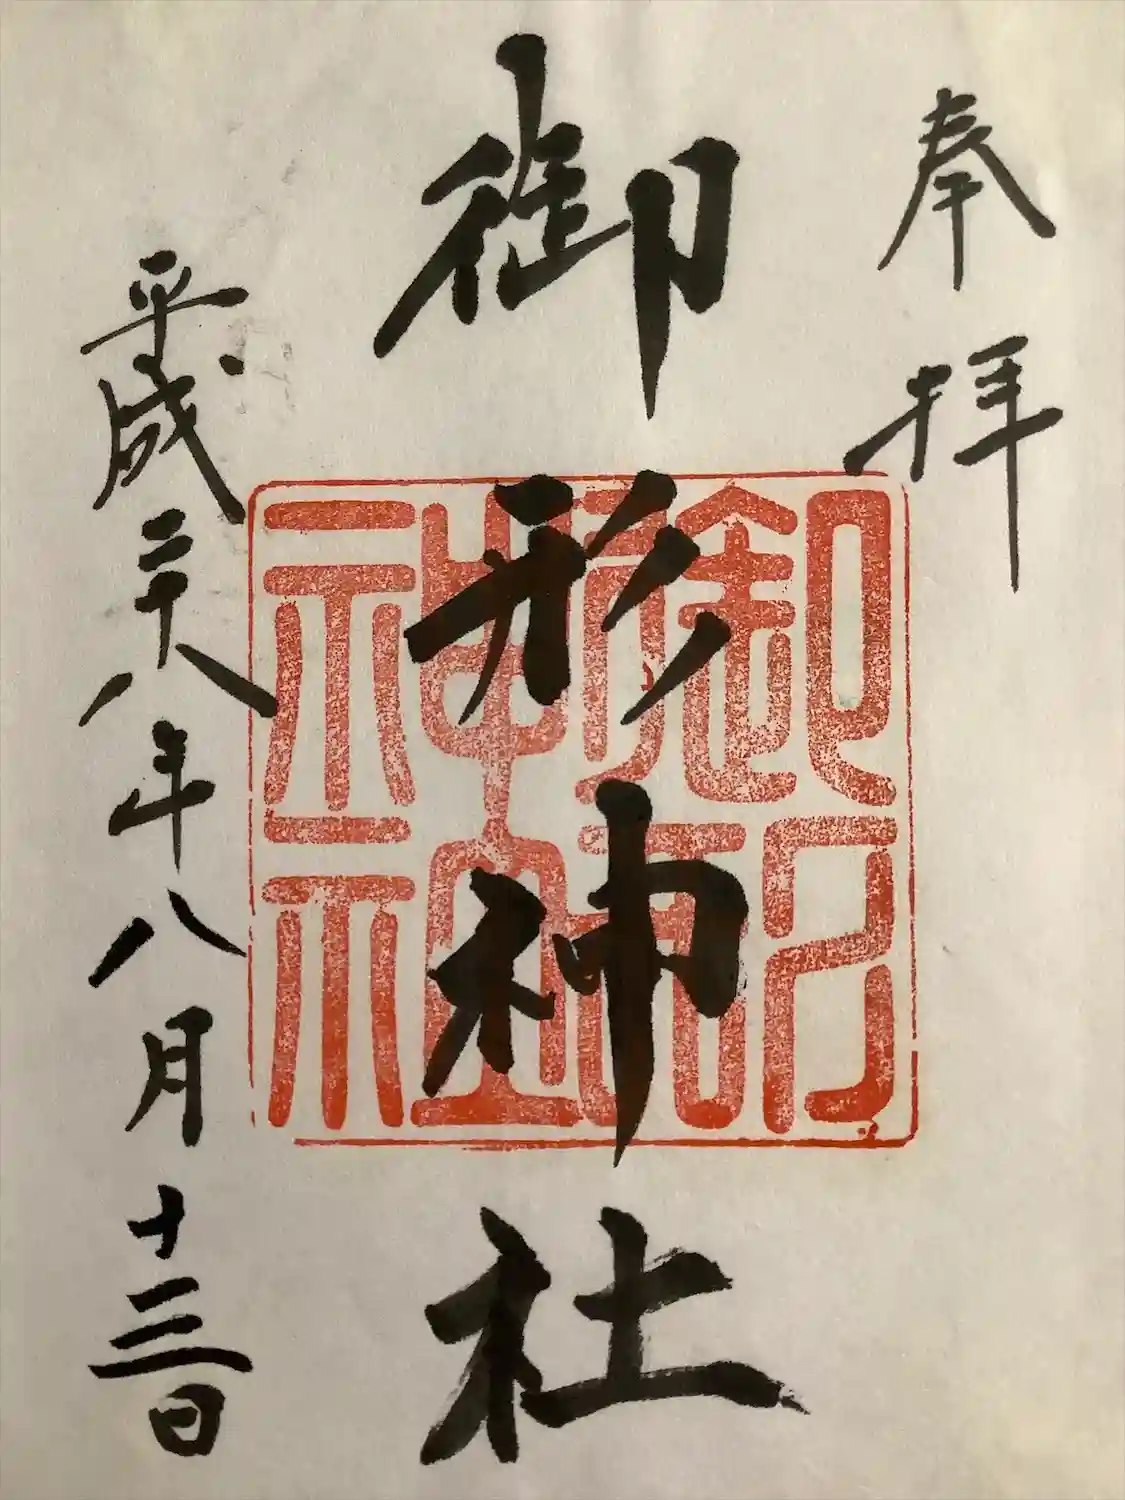 奉拝
御形神社
平成二十八年八月十三日
御形神社